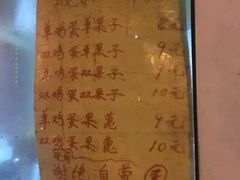 单鸡蛋单果子 8元
双鸡蛋单果子 9元
单鸡蛋双果子 9元
双鸡蛋双果子 10元
单鸡蛋果篦 9元
双鸡蛋果篦 10元
自带